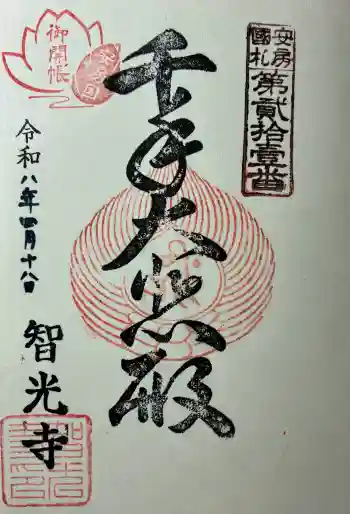 安房
國札
第貳拾壹番
千手大悲殿
御開帳
令和八年四月十八日
智光寺